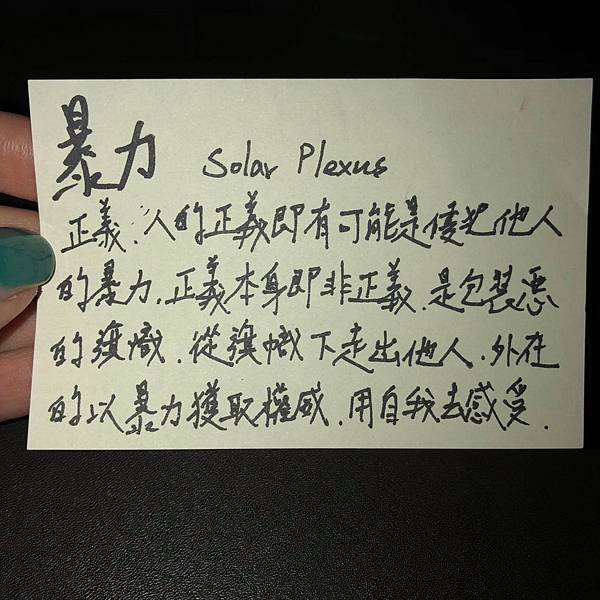 暴力 Solar Plexus
正義.人的正義即有可能是侵犯他人
的暴力.正義本身即非正義.是包裝惡
的旗幟.從旗幟下走出他人.外在
的以暴力獲取權威.用自我去感受.